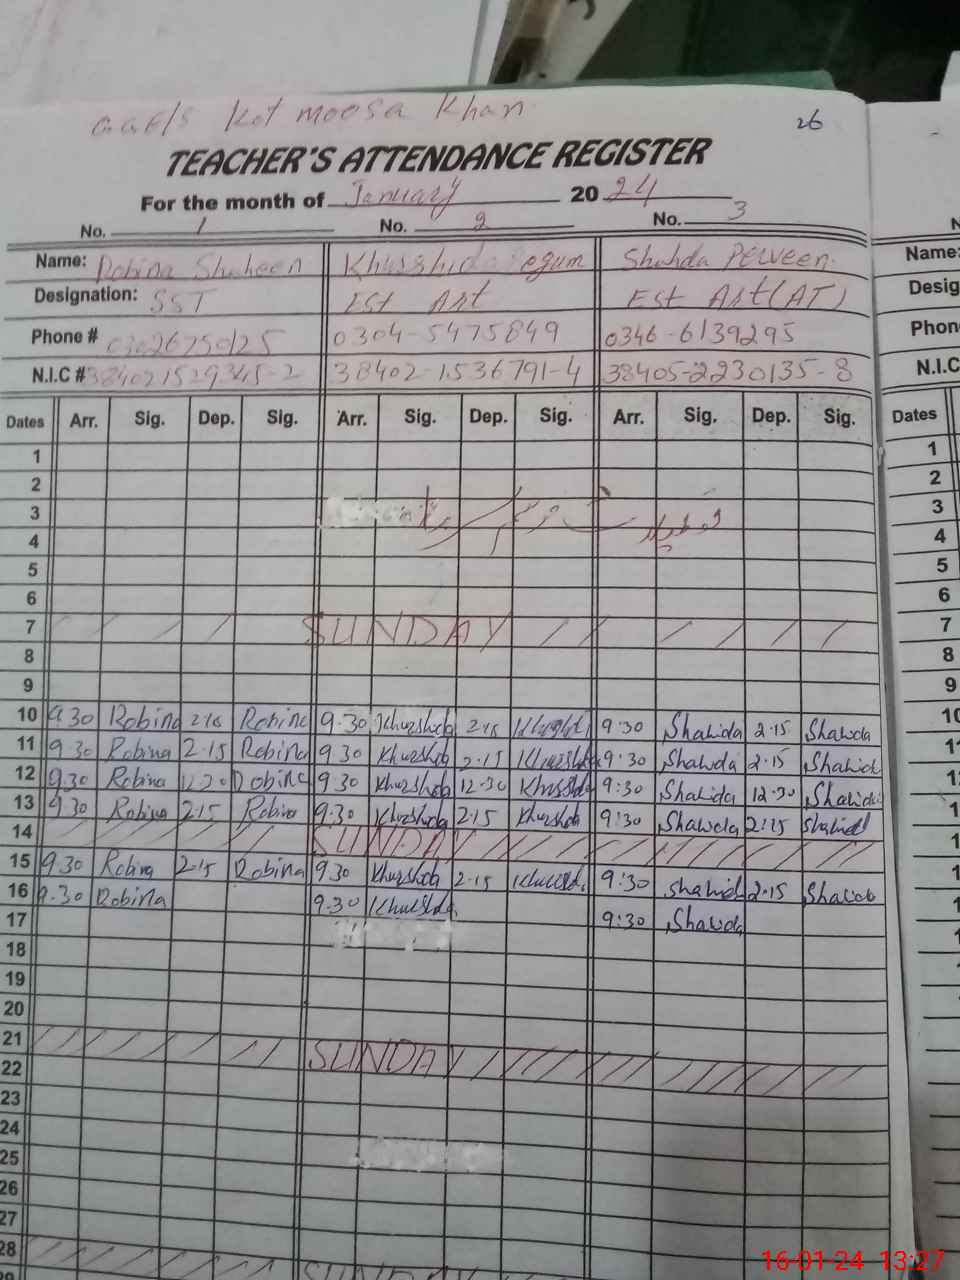 G.G.E/S Kot moosa Khan
26
TEACHER'S ATTENDANCE REGISTER
For the month of January 2024
No. 1 No. 2 No. 3
Name: Robina Shaheen Khurshida Begum Shahda Perveen Name:
Designation: SST Est Art Est Art (AT) Desig
Phone # 0304-5475849 0346-6139295 Phon
N.I.C # 38402-1536791-4 38405-2230135-8 N.I.C
Dates Arr. Sig. Dep. Sig. Arr. Sig. Dep. Sig. Arr. Sig. Dep. Sig. Dates
1 1
2 2
3 3
4 4
5 5
6 6
7 SUNDAY 7
8 8
9 9
10 9.30 Robina 2.15 Robina 9.30 Khurshida 2.15 9:30 Shahida 2.15 Shahida
11 9.30 Robina 2.15 Robina 9.30 Khurshida 2.15 Khurshida 9:30 Shahida 2.15 Shahida
12 9.30 Robina 12.30 Robina 9.30 Khurshida 12.30 Khurshida 9:30 Shahida 12.30 Shahida
13 9.30 Robina 2.15 Robina 9.30 Khurshida 2.15 Khurshida 9:30 Shahida 2:15 Shahida
14 SUNDAY
15 9.30 Robina 2.15 Robina 9.30 Khurshida 2.15 9:30 Shahida 2.15 Shahida
16 9.30 Robina 9.30 Khurshida 9:30 Shahida
17
18
19
20
21 SUNDAY
22
23
24
25
26
27
28 SUNDAY
16-01-24 13:27